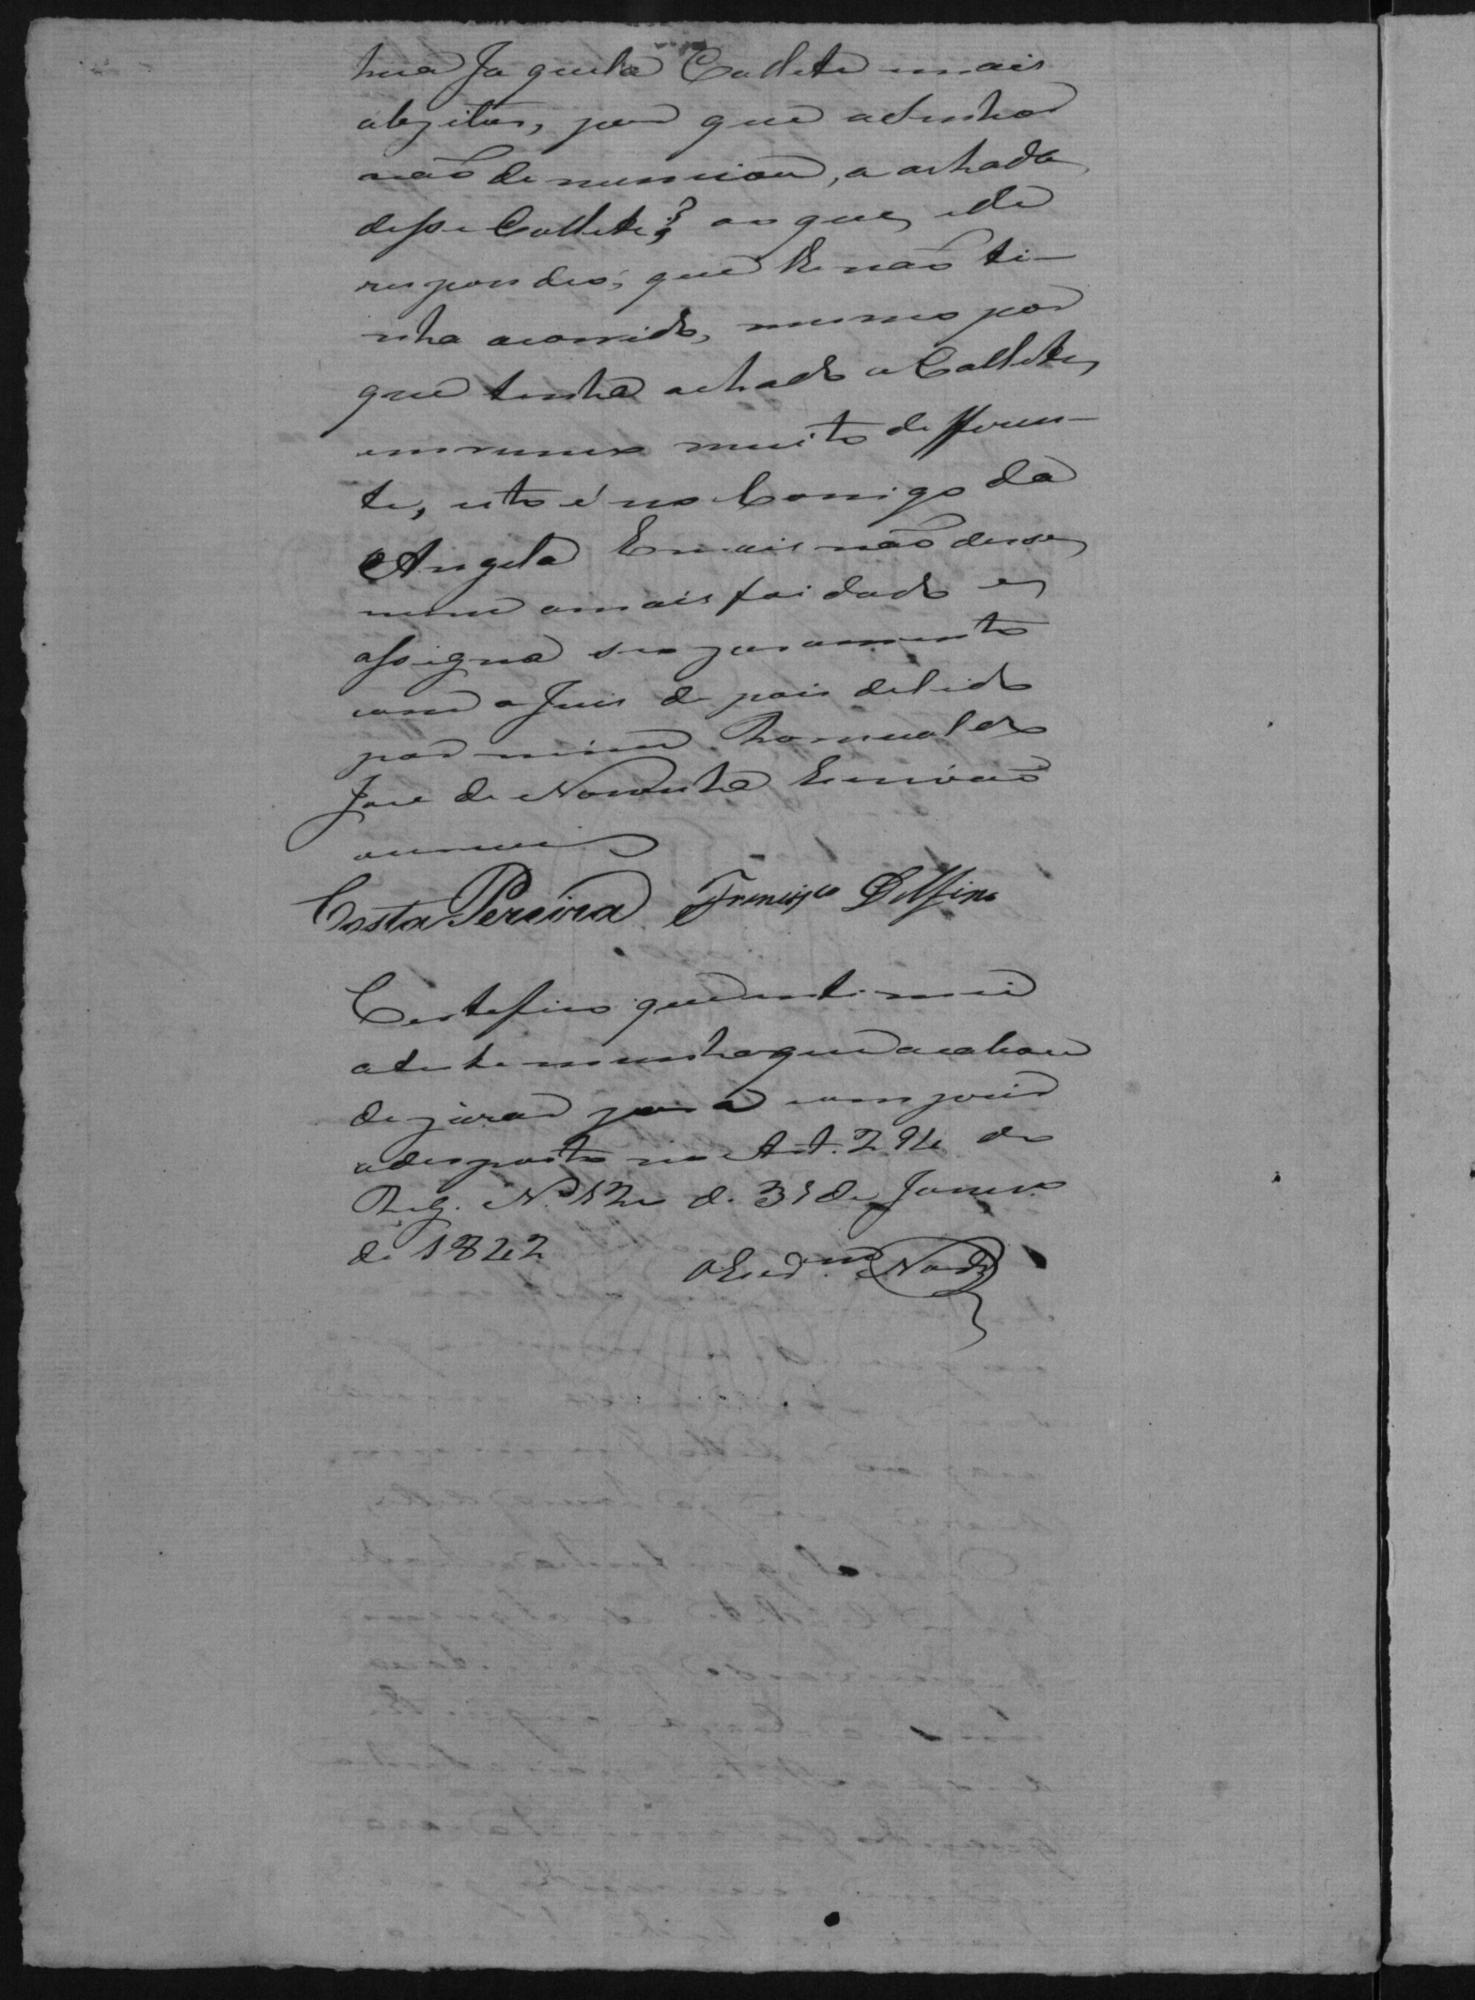 hua Jaqueta Collete e mais
objetos, por que a Senhor
não denunciou, a achada
desse Collete? ao que, elle
respondeo, que lhe não ti-
nha acorrido, mesmo por
que tinha achado o Collete,
em rumo muito differen-
te, isto é no Corrigo da
Angela E mais não disse,
nem a mais foi dado e
assigna seu juramento
com o Juis de pais del lido
por mim Romualdo
José de Noronha Escrivão
escrevi
Costa Pereira Francisco Delfino
Certefico que intimei
a testemunha que acabou
de jurar para comprir
o desposto no Art. 294 do
Reg. Nº 120 de 31 de Janeiro
de 1842
O Escrivam Nor.ª